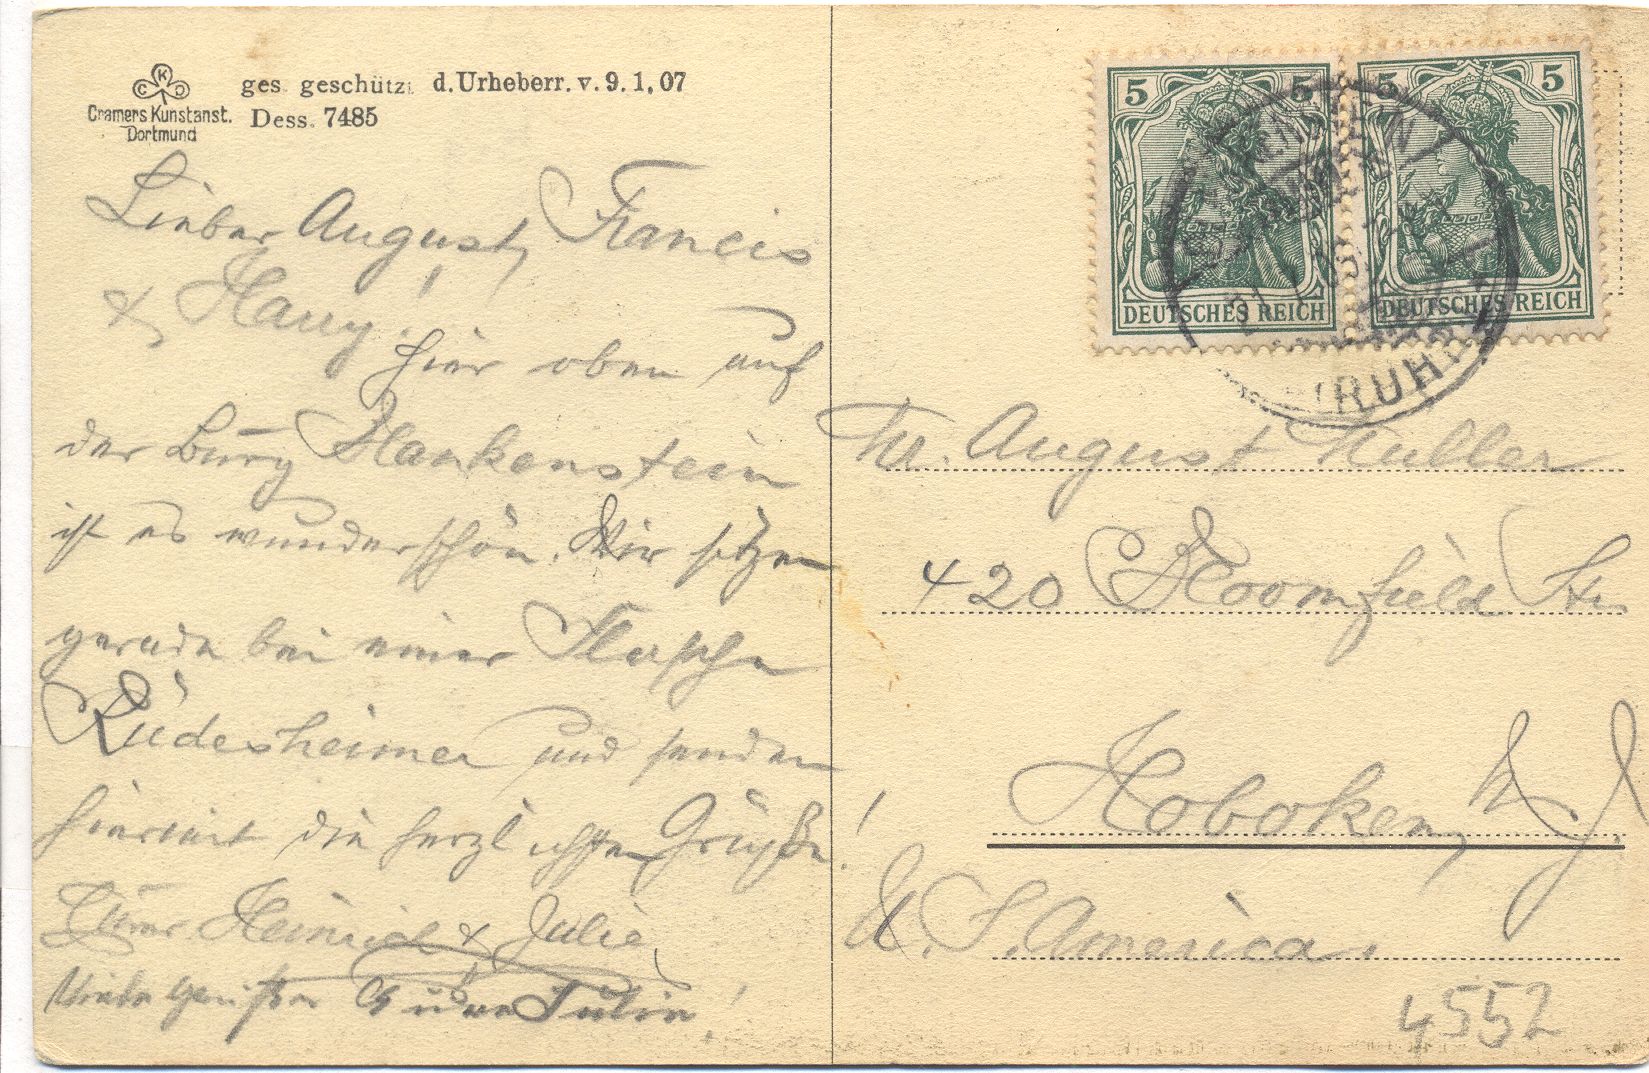 K
C D
Cramers Kunstanst.
Dortmund
ges. geschützt d. Urheberr. v. 9. 1. 07
Dess. 7485
Lieber August, Francis
& Harry!
Hier oben auf
der Burg Blankenstein
ist es wunderschön. Wir sitzen
gerade bei einer Flasche
Rüdesheimer und senden
hiermit die herzlichsten Grüße!
Heinrich & Julie
Viele
5 5
DEUTSCHES REICH
5 5
DEUTSCHES REICH
(RUHR
August Muller
420 Bloomfield Str.
Hoboken, N. J.
U. S. America.
4552